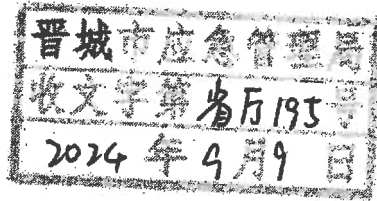 晋城市应急管理局
收文字第省厅195号
2024年9月9日